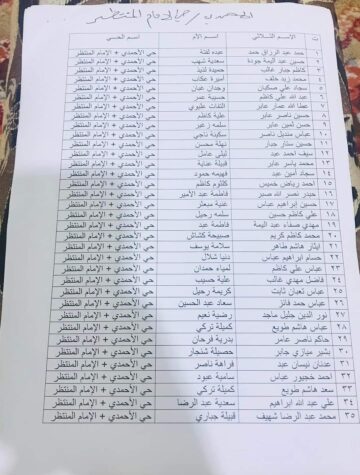 الاحمدي / حي الامام المنتظر
ت الاسم الثلاثي اسم الأم اسم الحي
١ حمد عبد الرزاق حمد عبده لفتة حي الأحمدي + الإمام المنتظر
٢ حسين عبد اليمة جودة سعدية شهب حي الأحمدي + الإمام المنتظر
٣ كاظم جبار غالب حميدة لذيذ حي الأحمدي + الإمام المنتظر
٤ محمد زيد خلف اميرة عكاب حي الأحمدي + الإمام المنتظر
٥ سجاد علي صكبان وجدان غبان حي الأحمدي + الإمام المنتظر
٦ عبد الله علي كاظم حسيبة عمر حي الأحمدي + الإمام المنتظر
٧ عطا الله عمار عابر التفات عليوي حي الأحمدي + الإمام المنتظر
٨ حسين ناصر عابر علية كاظم حي الأحمدي + الإمام المنتظر
٩ حسن امين عابر سلمه زغير حي الأحمدي + الإمام المنتظر
١٠ عباس منديل ناصر سكينة ناجي حي الأحمدي + الإمام المنتظر
١١ حسين ستار جبار نهلة محسن حي الأحمدي + الإمام المنتظر
١٢ سيف احمد عبد ليلى عامل حي الأحمدي + الإمام المنتظر
١٣ محمد ياسر عابر قبيلة عناية حي الأحمدي + الإمام المنتظر
١٤ سجاد أمين عبد فهيمه حمود حي الأحمدي + الإمام المنتظر
١٥ احمد رياض خميس كلثوم كاظم حي الأحمدي + الإمام المنتظر
١٦ حيدر نصر الله صبر فاطمة عبد الأمير حي الأحمدي + الإمام المنتظر
١٧ حسين ابراهيم عباس غنية سبعثر حي الأحمدي + الإمام المنتظر
١٨ علي كاظم حسين سلمه رحيل حي الأحمدي + الإمام المنتظر
١٩ مهدي صفاء عبد اليمة فاطمة عبد حي الأحمدي + الإمام المنتظر
٢٠ محمد كاظم كريم صبيحة كشاش حي الأحمدي + الإمام المنتظر
٢١ ايثار هاشم طاهر سلامة يوسف حي الأحمدي + الإمام المنتظر
٢٢ حسام ابراهيم عباس دنيا شلال حي الأحمدي + الإمام المنتظر
٢٣ عباس علي كاظم لمياء حمدان حي الأحمدي + الإمام المنتظر
٢٤ فاضل مهدي غالب علية حسيب حي الأحمدي + الإمام المنتظر
٢٥ عباس نعمان ثابت كريمة رحيل حي الأحمدي + الإمام المنتظر
٢٦ عباس حمد فانز سعاد عبد الحسين حي الأحمدي + الإمام المنتظر
٢٧ نور الدين جليل ماجد رضية نعيم حي الأحمدي + الإمام المنتظر
٢٨ عباس هاشم طويع كميلة تركي حي الأحمدي + الإمام المنتظر
٢٩ حاكم ناصر عامر بدرية فرحان حي الأحمدي + الإمام المنتظر
٣٠ بشير مبازي جابر حصيلة شنجار حي الأحمدي + الإمام المنتظر
٣١ عدنان نيسان عبد فراهة ناصر حي الأحمدي + الإمام المنتظر
٣٢ احمد خجيور عباس سامية عبود حي الأحمدي + الإمام المنتظر
٣٣ سعد هاشم طويع كميلة تركي حي الأحمدي + الإمام المنتظر
٣٤ علي عبد الله ابراهيم سعدية عبد الرضا حي الأحمدي + الإمام المنتظر
٣٥ محمد عبد الرضا شهيف قبيلة جباري حي الأحمدي + الإمام المنتظر